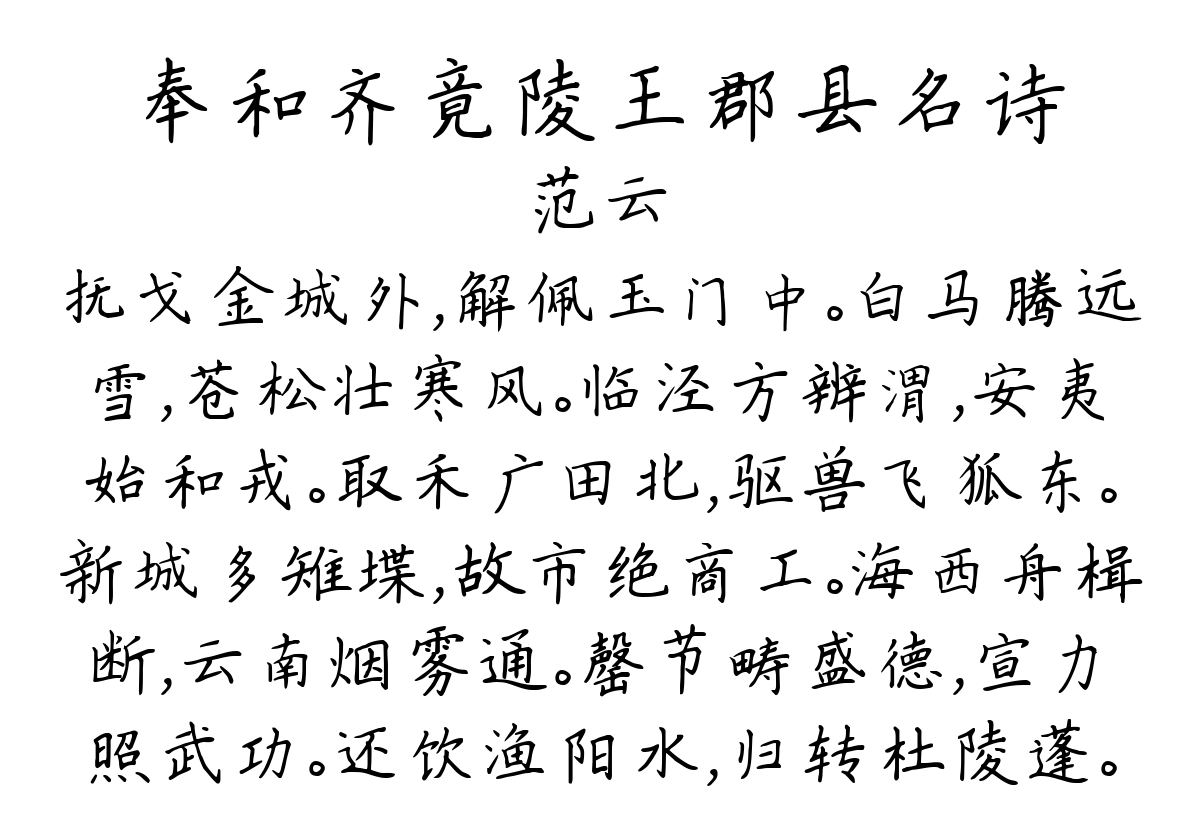 奉和齐竟陵王郡县名诗
范云
抚戈金城外,解佩玉门中。白马腾远
雪,苍松壮寒风。临泾方辨渭,安夷
始和戎。取禾广田北,驱兽飞狐东。
新城多雉堞,故市绝商工。海西舟楫
断,云南烟雾通。罄节畴盛德,宣力
照武功。还饮渔阳水,归转杜陵蓬。